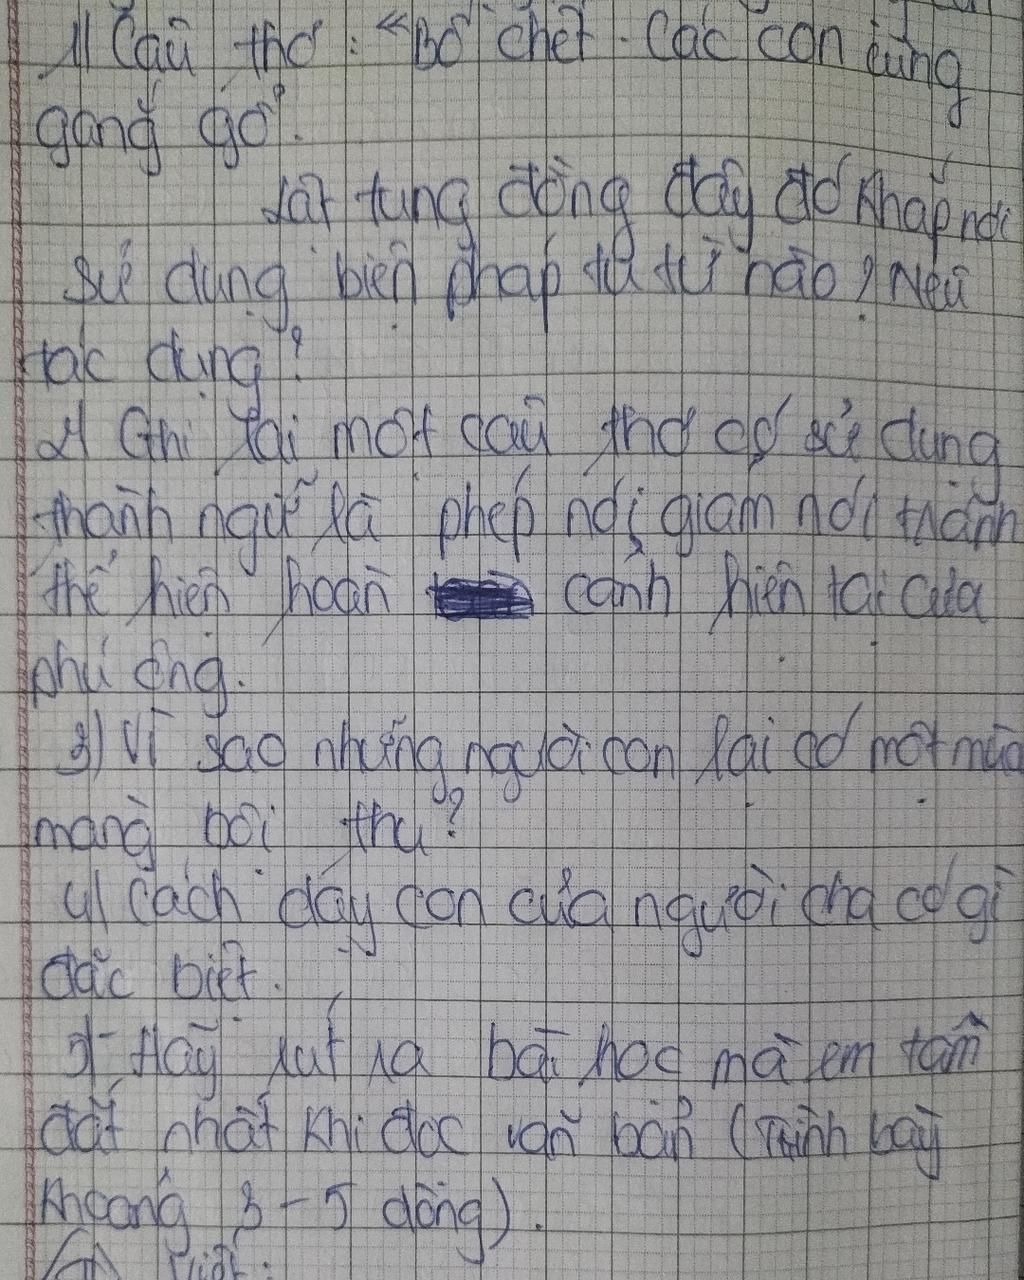 1) Câu thơ: "Bố chết. Các con cũng
gắng gỏ".
Lật tung đồng đây đó khắp nơi
Sử dụng biện pháp tu từ nào? Nêu
tác dụng?
2) Ghi lại một câu thơ có sử dụng
thành ngữ là phép nói giảm nói tránh
thể hiện hoàn cảnh hiện tại của
phú ông.
3) Vì sao những người con lại có một mùa
màng bội thu?
4) Cách dạy con của người cha có gì
đặc biệt.
5) Hãy rút ra bài học mà em tâm
đắt nhất khi đọc văn bản (Trình bày
khoảng 3-5 dòng).